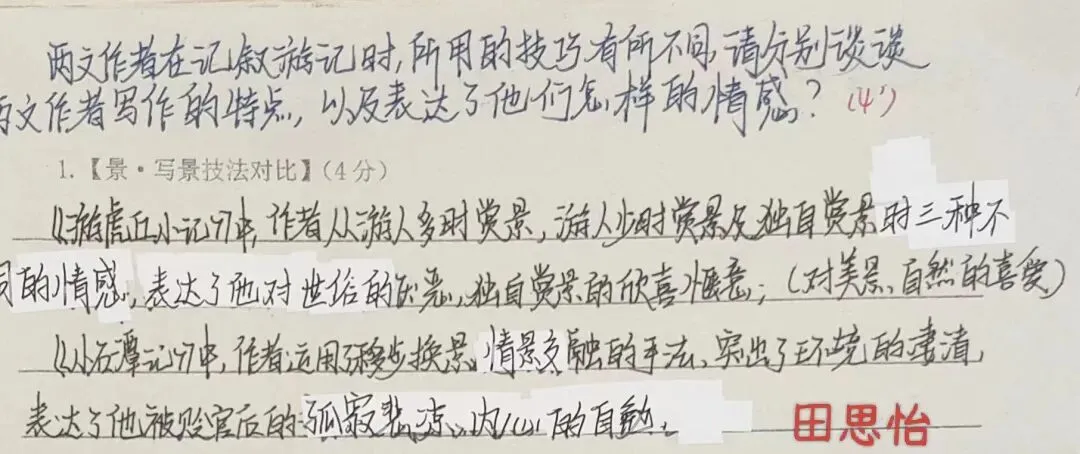 两文作者在记叙游记时,所用的技巧有所不同,请分别谈谈
两文作者写作的特点,以及表达了他们怎样的情感?(4')
1.【景·写景技法对比】(4分)
《游虎丘小记》中,作者从游人多时赏景,游人少时赏景及独自赏景时三种不
同的情感,表达了他对世俗的厌恶,独自赏景的欣喜惬意;(对美景、自然的喜爱)
《小石潭记》中,作者运用了移步换景、情景交融的手法、突出了环境的凄清,
表达了他被贬官后的孤寂悲凉、内心的自勉.
田思怡